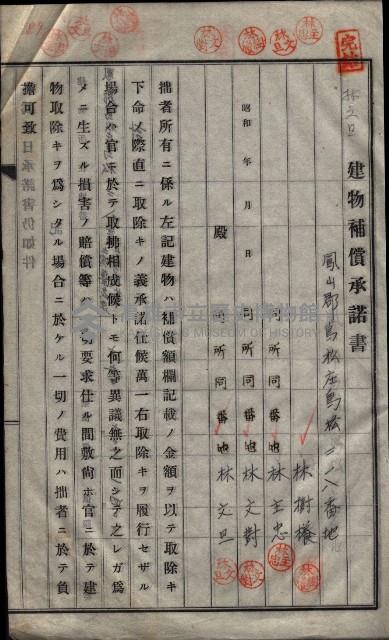 完結
林文旦
建物補償承諾書
鳳山郡鳥松庄鳥松二一八番地
林樹
同所同番地 林主忠
同所同番地 林文對
同所同番地 林文旦
殿
昭和 年 月 日
拙者所有ニ係ル左記建物ハ補償額欄記載ノ金額ヲ以テ取除キ
下命ノ際直ニ取除キノ義承諾仕候萬一右取除キヲ履行セザル
場合ハ官ニ於テ取拂相成候トモ何等異議無之而シテ之レガ爲
メニ生ズル損害ノ賠償等ハ一切要求仕ル間敷尙ホ官ニ於テ建
物取除キヲ爲シタル場合ニ於ケル一切ノ費用ハ拙者ニ於テ負
擔可致 日承諾書仍如件